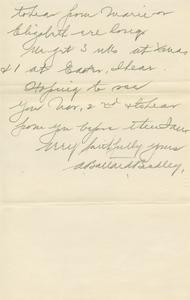 to hear from Marie or
Elizabeth ere long
We get 3 wks at Xmas
& 1 at Easter, I hear.
Hoping to see
you Nov. 2nd & to hear
from you before then I am
Very faithfully yours
A Ballard Bradley,